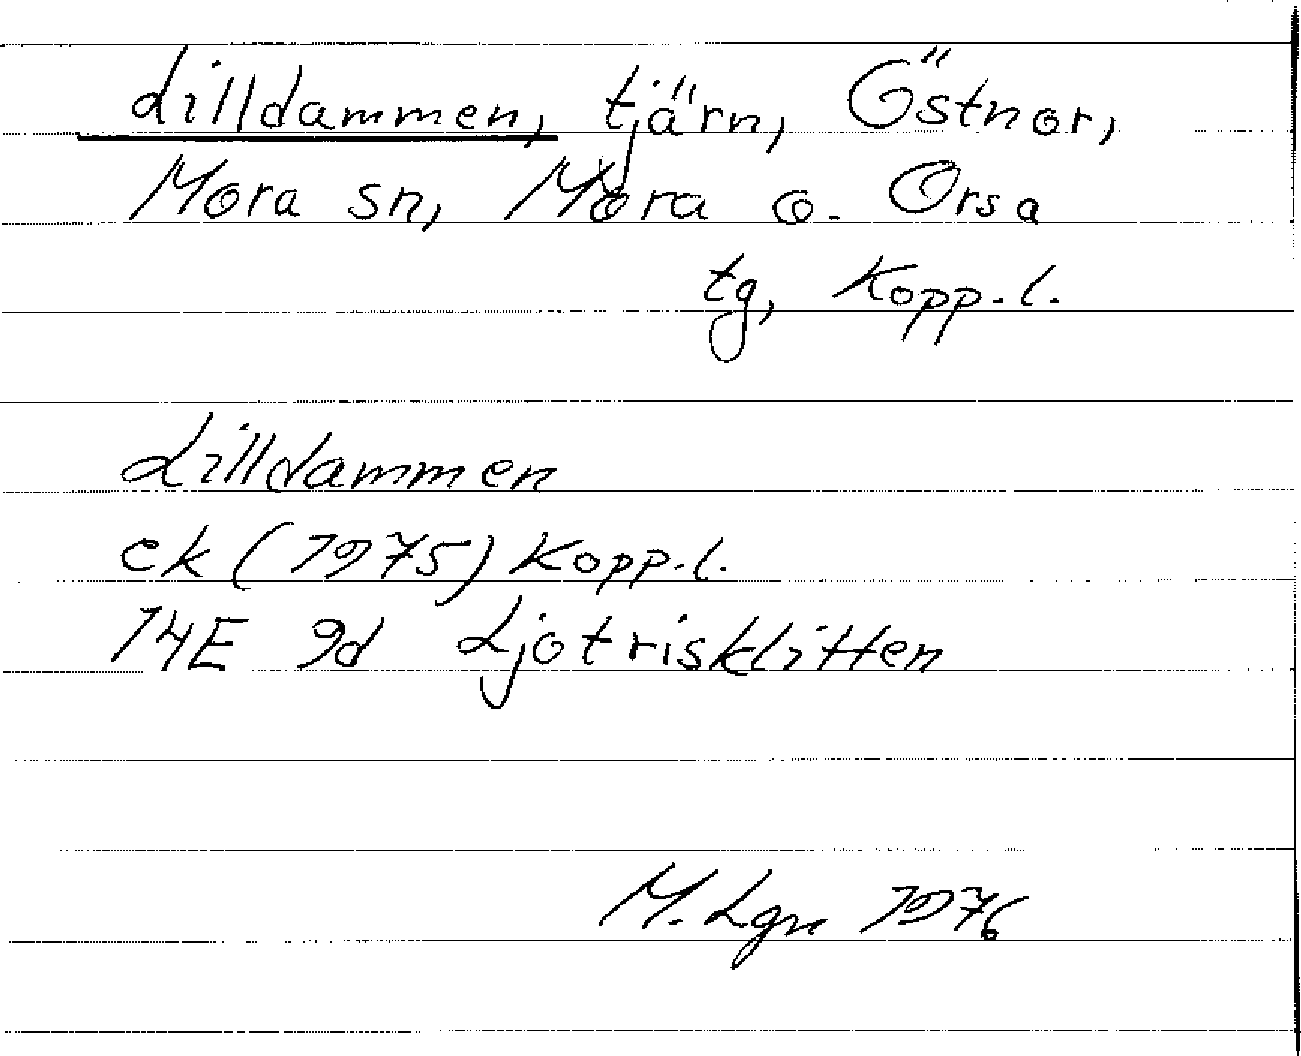 Lilldammen, tjärn, Östnor,
Mora sn, Mora o. Orsa
tg, Kopp.l.
Lilldammen
ek (1975) Kopp.l.
14E 9d Ljotrisklitten
M. Lgn 1976